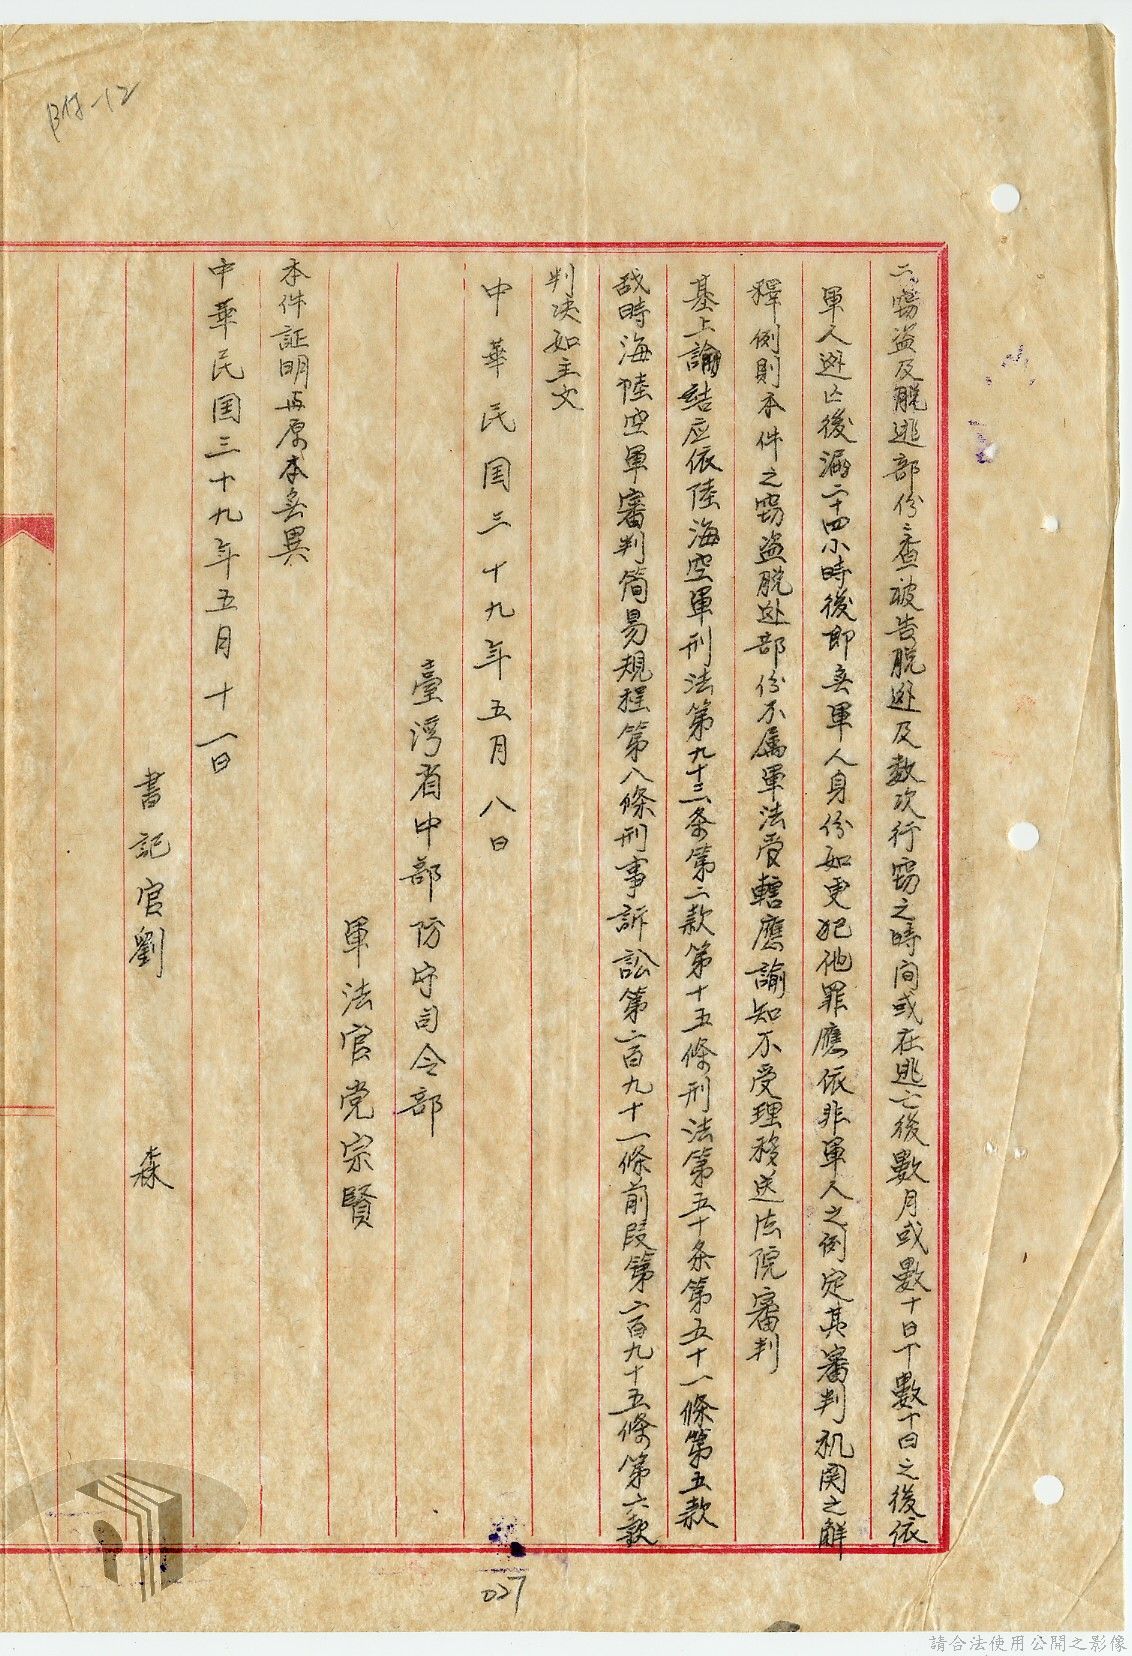 附-12
二、竊盜及脫逃部份查被告脫逃及數次行竊之時间或在逃亡後數月或數十日下數十日之後依
軍人逃亡後滿二十四小時後即無軍人身份如更犯他罪應依非軍人之例定其審判机関之解
釋例則本件之竊盜脫逃部份不屬軍法受轄應諭知不受理移送法院審判
基上論結应依陸海空軍刑法第九十三条第二款第十五條刑法第五十条第五十一條第五款
战時海陸空軍審判简易規程第八條刑事訴訟第二百九十一條前段第二百九十五條第六款
判决如主文
中華民国三十九年五月八日
臺湾省中部防守司令部
軍法官党宗賢
本件証明与原本無異
中華民国三十九年五月十一日
書記官劉 森
027
請合法使用公開之影像